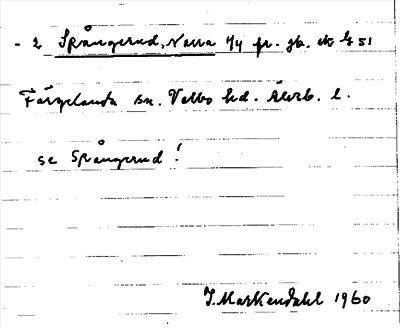 - 2 Spångerud, Norra 1/4 fr. jb. ek bl 51
Färgelanda sn. Valbo hd. Älvsb. l.
se Spångerud!
I. Markendahl 1960